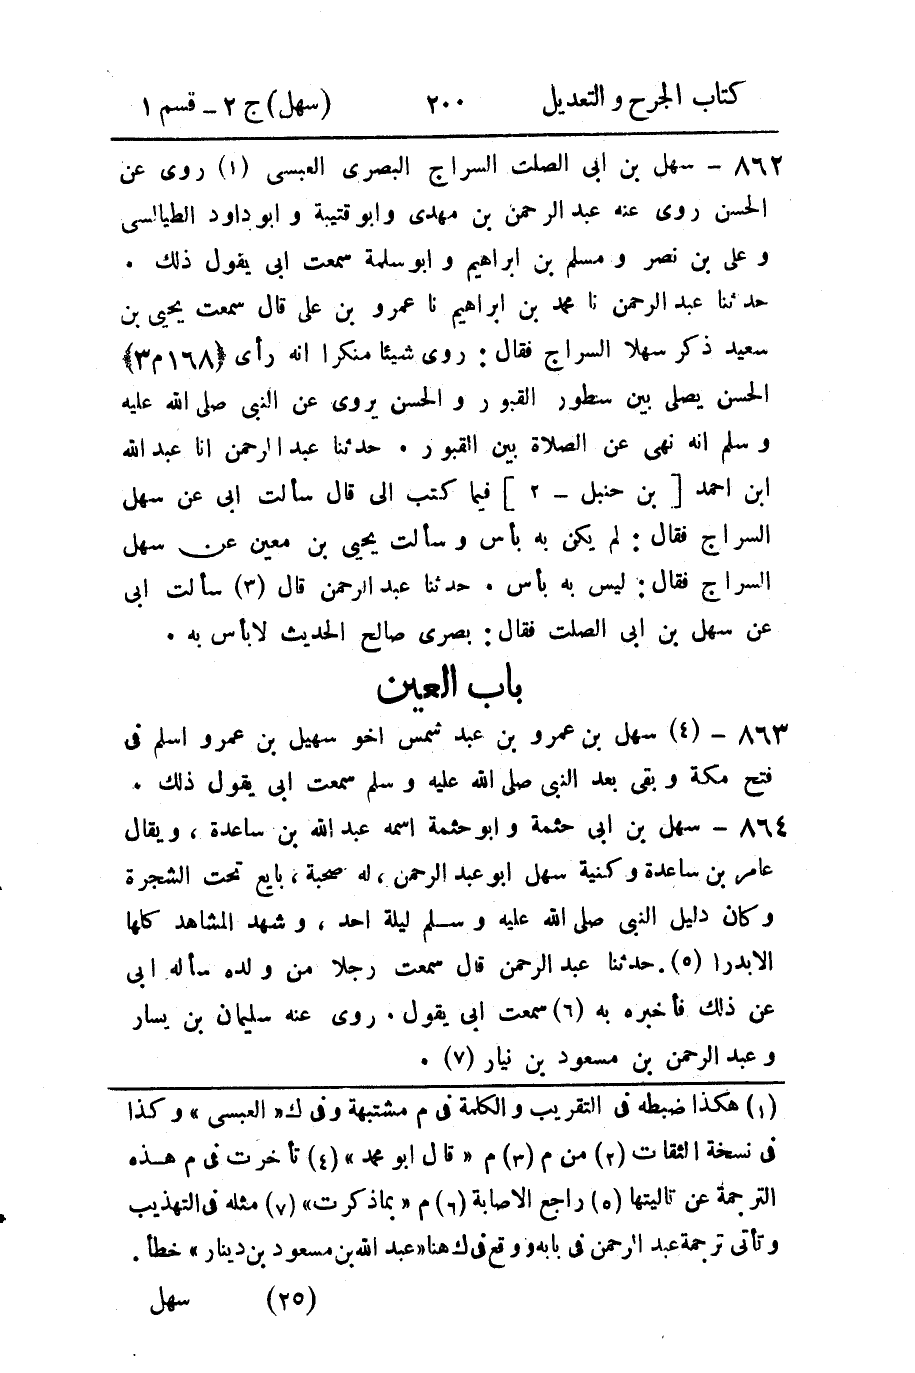 كتاب الجرح و التعديل ٢٠٠ (سهل) ج ٢ - قسم ١
٨٦٢ - سهل بن ابى الصلت السراج البصرى العبسى (١) روى عن
الحسن روى عنه عبد الرحمن بن مهدى وابو قتيبة و ابو داود الطيالسى
و على بن نصر و مسلم بن ابراهيم و ابو سلمة سمعت ابى يقول ذلك .
حدثنا عبد الرحمن نا محمد بن ابراهيم نا عمرو بن على قال سمعت يحيى بن
سعيد ذكر سهلا السراج فقال : روى شيئا منكرا انه رأى ﴿١٦٨م٣﴾
الحسن يصلى بين سطور القبور و الحسن يروى عن النبى صلى الله عليه
و سلم انه نهى عن الصلاة بين القبور . حدثنا عبد الرحمن انا عبد الله
ابن احمد [ بن حنبل - ٢ ] فيما كتب الى قال سألت ابى عن سهل
السراج فقال : لم يكن به بأس و سألت يحيى بن معين عن سهل
السراج فقال : ليس به بأس . حدثنا عبد الرحمن قال (٣) سألت ابى
عن سهل بن ابى الصلت فقال : بصرى صالح الحديث لابأس به .
باب العين
٨٦٣ - (٤) سهل بن عمرو بن عبد شمس اخو سهيل بن عمرو اسلم فى
فتح مكة و بقى بعد النبى صلى الله عليه و سلم سمعت ابى يقول ذلك .
٨٦٤ - سهل بن ابى حثمة و ابو حثمة اسمه عبد الله بن ساعدة ، و يقال
عامر بن ساعدة و كنية سهل ابو عبد الرحمن ، له صحبة ، بايع تحت الشجرة
و كان دليل النبى صلى الله عليه و سلم ليلة احد ، و شهد المشاهد كلها
الابدرا (٥) . حدثنا عبد الرحمن قال سمعت رجلا من ولده سأله ابى
عن ذلك فأخبره به (٦) سمعت ابى يقول . روى عنه سليمان بن يسار
و عبد الرحمن بن مسعود بن نيار (٧) .
(١) هكذا ضبطه فى التقريب و الكلمة فى م مشتبهة و فى ك « العبسى » و كذا
فى نسخة الثقات (٢) من م (٣) م « قال ابو محمد » (٤) تأخرت فى م هذه
الترجمة عن تاليتها (٥) راجع الاصابة (٦) م « بما ذكرت » (٧) مثله فى التهذيب
و تأتى ترجمة عبد الرحمن فى بابه و وقع فى ك هنا « عبد الله بن مسعود بن دينار » خطأ .
(٢٥) سهل